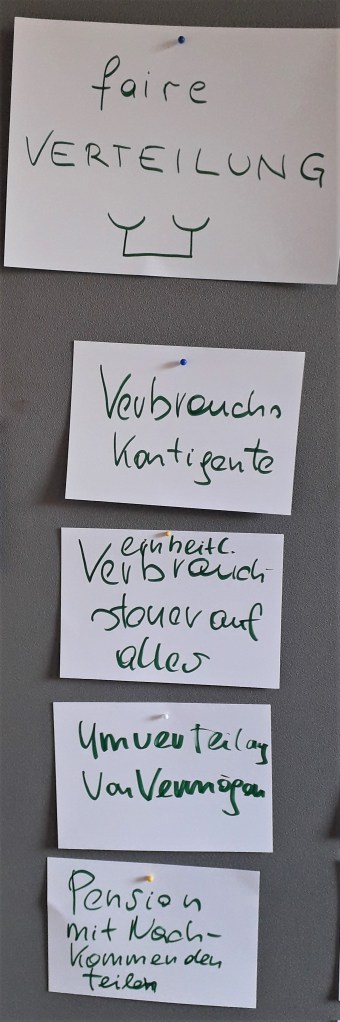 faire
VERTEILUNG
Verbrauchs
Kontigente
einheitl.
Verbrauch-
steuer auf
alles
Umverteilung
von Vermögen
Pension
mit Nach-
kommenden
teilen